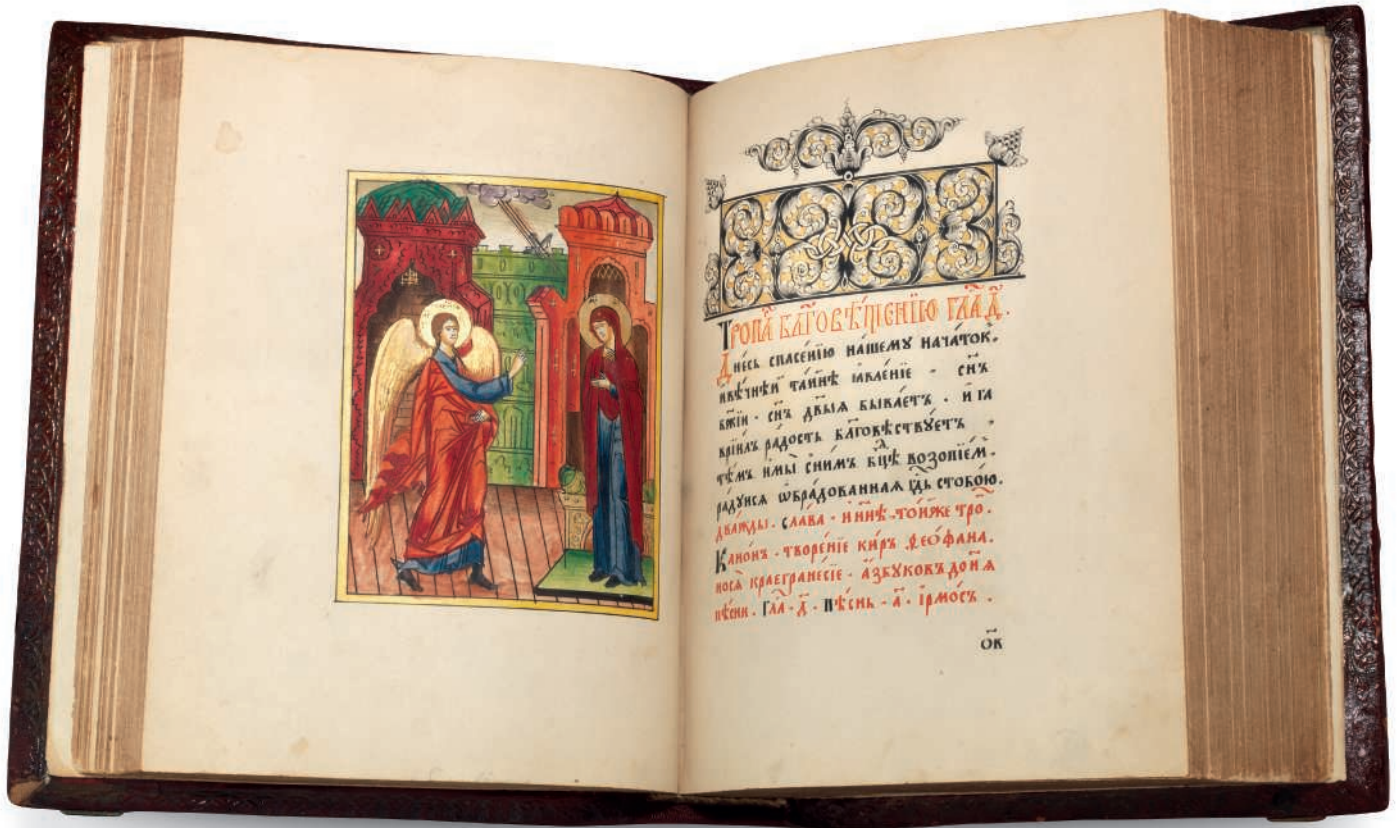 Тропа̑ бл҃говѣ́щенїю гла̑ д҃.
Дне́сь спасе́нїю на́шему нача́токъ.
ивѣ́чнѣй та́йнѣ ꙗвле́нїе · сн҃ъ
бж҃їи · сн҃ъ дв҃ыѧ быва́етъ · и҆ га
врїи́лъ ра́дость бл҃говѣствꙋ́етъ ·
тѣ́мъ имы̀ сни́мъ бц҃ѣ возопїе́м ·
ра́дꙋисѧ ѡ҆бра́дованнаѧ гд҇ь стобо́ю.
два́жды · сла́ва · и нн҃ѣ · то́йже тро̑ ·
Кано́нъ · творе́нїе ки́ръ ѳео́фана.
нося̀ краегране́сїе · а҆́збꙋковъ до и҃ ѧ
пѣ́сни. Гла̑ · д҃ · пѣ́снь · а҃ · і҆рмо́съ ·
ѻ҃в